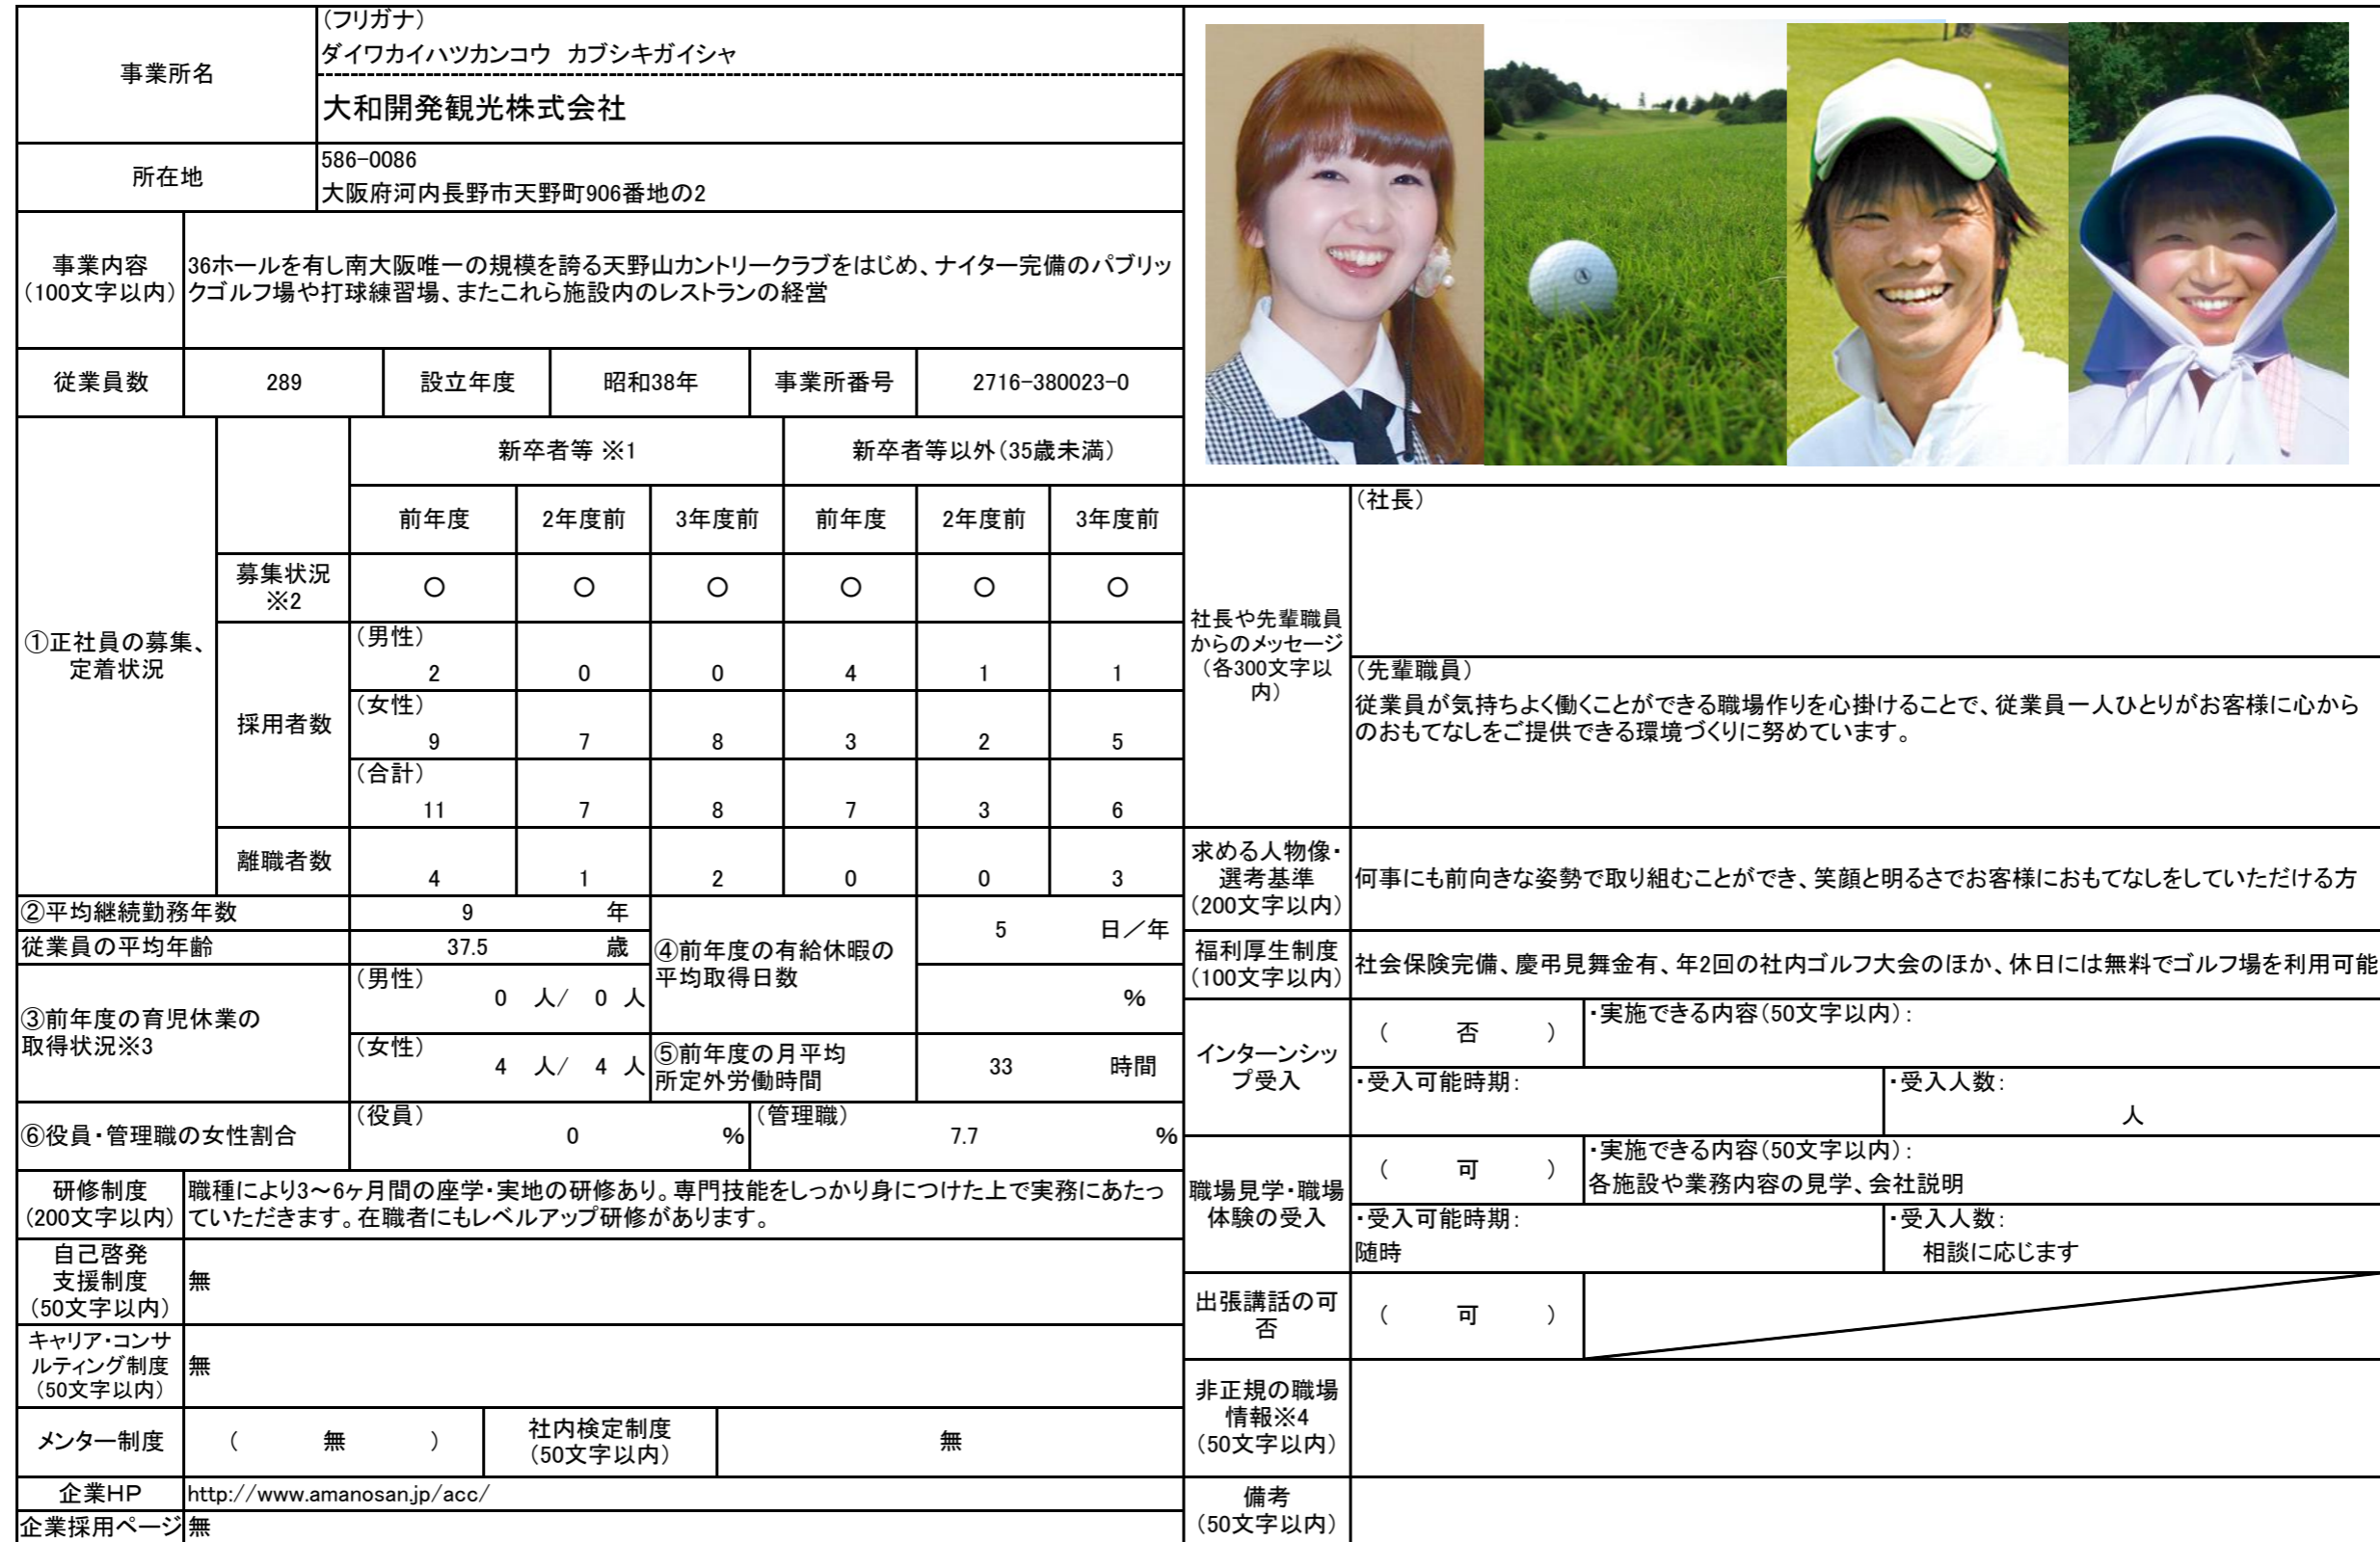 事業所名
（フリガナ）
ダイワカイハツカンコウ　カブシキガイシャ
大和開発観光株式会社
所在地
586-0086
大阪府河内長野市天野町906番地の2
事業内容
（100文字以内）
36ホールを有し南大阪唯一の規模を誇る天野山カントリークラブをはじめ、ナイター完備のパブリッ
クゴルフ場や打球練習場、またこれら施設内のレストランの経営
従業員数 289 設立年度 昭和38年 事業所番号 2716-380023-0
①正社員の募集、
定着状況
新卒者等 ※1 新卒者等以外（35歳未満）
前年度 2年度前 3年度前 前年度 2年度前 3年度前
募集状況
※2
○ ○ ○ ○ ○ ○
採用者数
（男性）
2 0 0 4 1 1
（女性）
9 7 8 3 2 5
（合計）
11 7 8 7 3 6
離職者数
4 1 2 0 0 3
②平均継続勤務年数 9 年
従業員の平均年齢 37.5 歳
③前年度の育児休業の
取得状況※3
（男性）
0 人/ 0 人
（女性）
4 人/ 4 人
④前年度の有給休暇の
平均取得日数
5 日／年
%
⑤前年度の月平均
所定外労働時間
33 時間
⑥役員・管理職の女性割合
（役員）
0 %
（管理職）
7.7 %
研修制度
（200文字以内）
職種により3～6ヶ月間の座学・実地の研修あり。専門技能をしっかり身につけた上で実務にあたっ
ていただきます。在職者にもレベルアップ研修があります。
自己啓発
支援制度
（50文字以内）
無
キャリア・コンサ
ルティング制度
（50文字以内）
無
メンター制度 （ 無 ）
社内検定制度
（50文字以内）
無
企業HP http://www.amanosan.jp/acc/
企業採用ページ 無
社長や先輩職員
からのメッセージ
（各300文字以
内）
（社長）
（先輩職員）
従業員が気持ちよく働くことができる職場作りを心掛けることで、従業員一人ひとりがお客様に心から
のおもてなしをご提供できる環境づくりに努めています。
求める人物像・
選考基準
（200文字以内）
何事にも前向きな姿勢で取り組むことができ、笑顔と明るさでお客様におもてなしをしていただける方
福利厚生制度
（100文字以内）
社会保険完備、慶弔見舞金有、年2回の社内ゴルフ大会のほか、休日には無料でゴルフ場を利用可能
インターンシッ
プ受入
（ 否 ）
・実施できる内容（50文字以内）：
・受入可能時期：
・受入人数：
人
職場見学・職場
体験の受入
（ 可 ）
・実施できる内容（50文字以内）：
各施設や業務内容の見学、会社説明
・受入可能時期：
随時
・受入人数：
相談に応じます
出張講話の可
否
（ 可 ）
非正規の職場
情報※4
（50文字以内）
備考
（50文字以内）